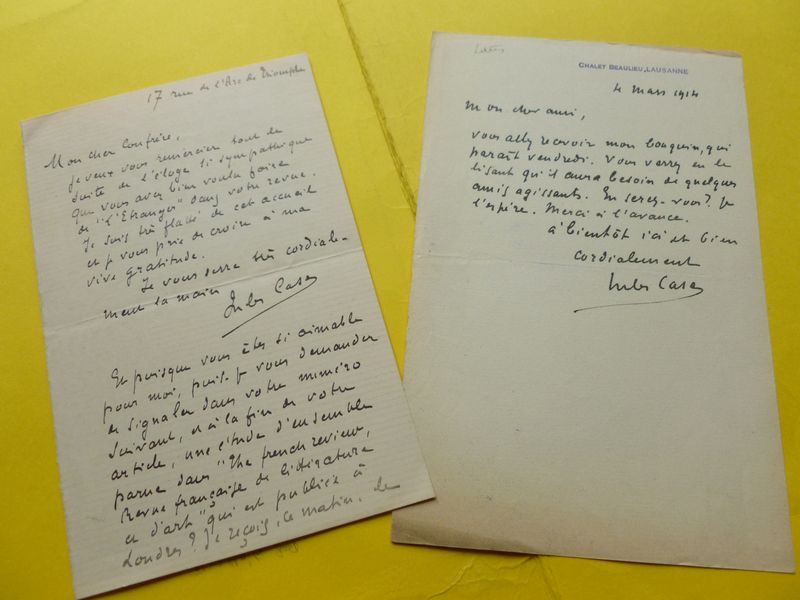 17 rue de l'Arc de Triomphe
Mon cher Confrère,
Je veux vous remercier tout de
suite de l'éloge si sympathique
que vous avez bien voulu faire
de "L'Etranger" dans votre revue.
Je suis très flatté de cet accueil
et je vous prie de croire à ma
vive gratitude.
Je vous serre très cordiale-
ment la main
Jules Case
Et puisque vous êtes si aimable
pour moi, puis-je vous demander
de signaler dans votre numéro
suivant, à la fin de votre
article, une étude d'ensemble
parue dans "The french review,
Revue française de littérature
et d'art" qui est publiée à
Londres? Je reçois, ce matin, le
CHALET BEAULIEU, LAUSANNE
4 mars 1914
Mon cher ami,
vous allez recevoir mon bouquin, qui
paraît vendredi. Vous verrez en le
lisant qu'il aura besoin de quelques
amis agissants. En serez-vous? Je
l'espère. Merci à l'avance.
à bientôt ici et bien
cordialement
Jules Case